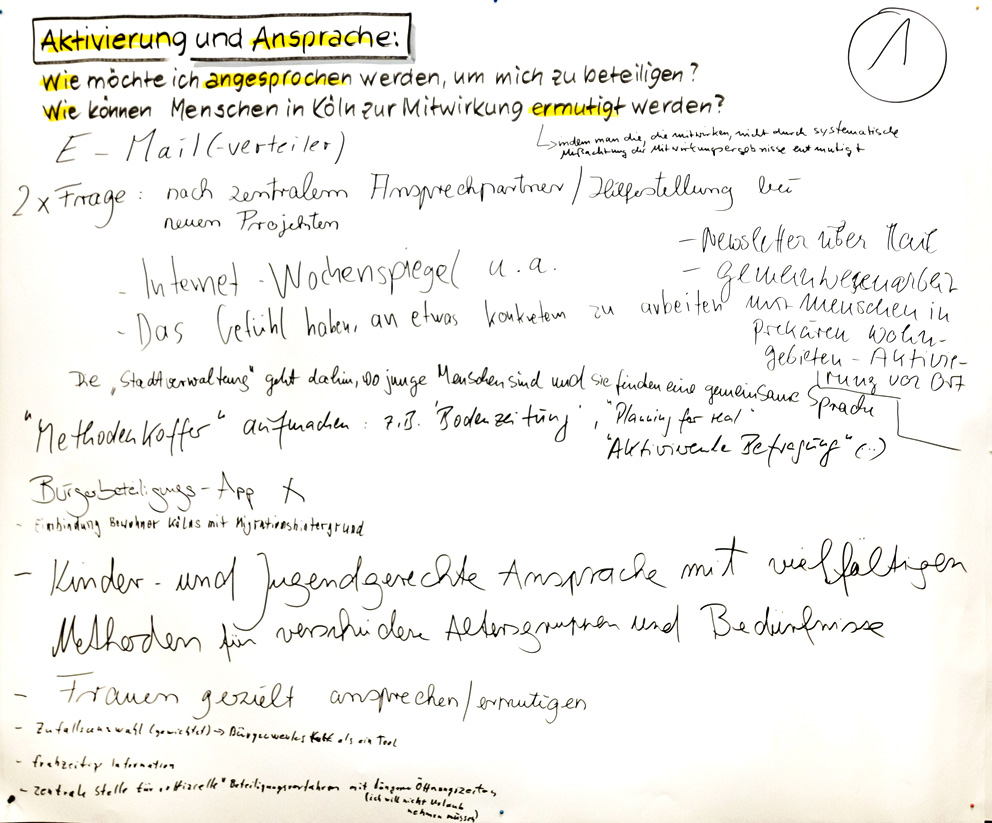 Aktivierung und Ansprache:
1
Wie möchte ich angesprochen werden, um mich zu beteiligen?
Wie können Menschen in Köln zur Mitwirkung ermutigt werden?
indem man die, die mitwirken, nicht durch systematische
Mißachtung der Mitwirkungsergebnisse entmutigt
E-Mail(-verteiler)
2x Frage: nach zentralem Ansprechpartner/Hilfestellung bei
neuen Projekten
- Newsletter über Mail
- Internet - Wochenspiegel u.a.
- Gemeinwesenarbeit
mit Menschen in
prekären Wohn-
gebieten - Aktivie-
rung vor Ort
- Das Gefühl haben, an etwas konkretem zu arbeiten
Die "Stadtverwaltung" geht dahin, wo junge Menschen sind und sie finden eine gemeinsame Sprache
"Methodenkoffer" aufmachen: z.B. 'Bodenzeitung', "Planning for real"
"Aktivierende Befragung" (..)
Bürgerbeteiligungs-App X
- Einbindung Bewohner Kölns mit Migrationshintergrund
- Kinder- und Jugendgerechte Ansprache mit vielfältigen
Methoden für verschiedene Altersgruppen und Bedürfnisse
- Frauen gezielt ansprechen/ermutigen
- Zufallsauswahl (gewichtet) → als ein Tool
- frühzeitig Information
- zentrale Stelle für "offizielle" Beteiligungsverfahren mit längeren Öffnungszeiten
(ich will nicht Urlaub
nehmen müssen)